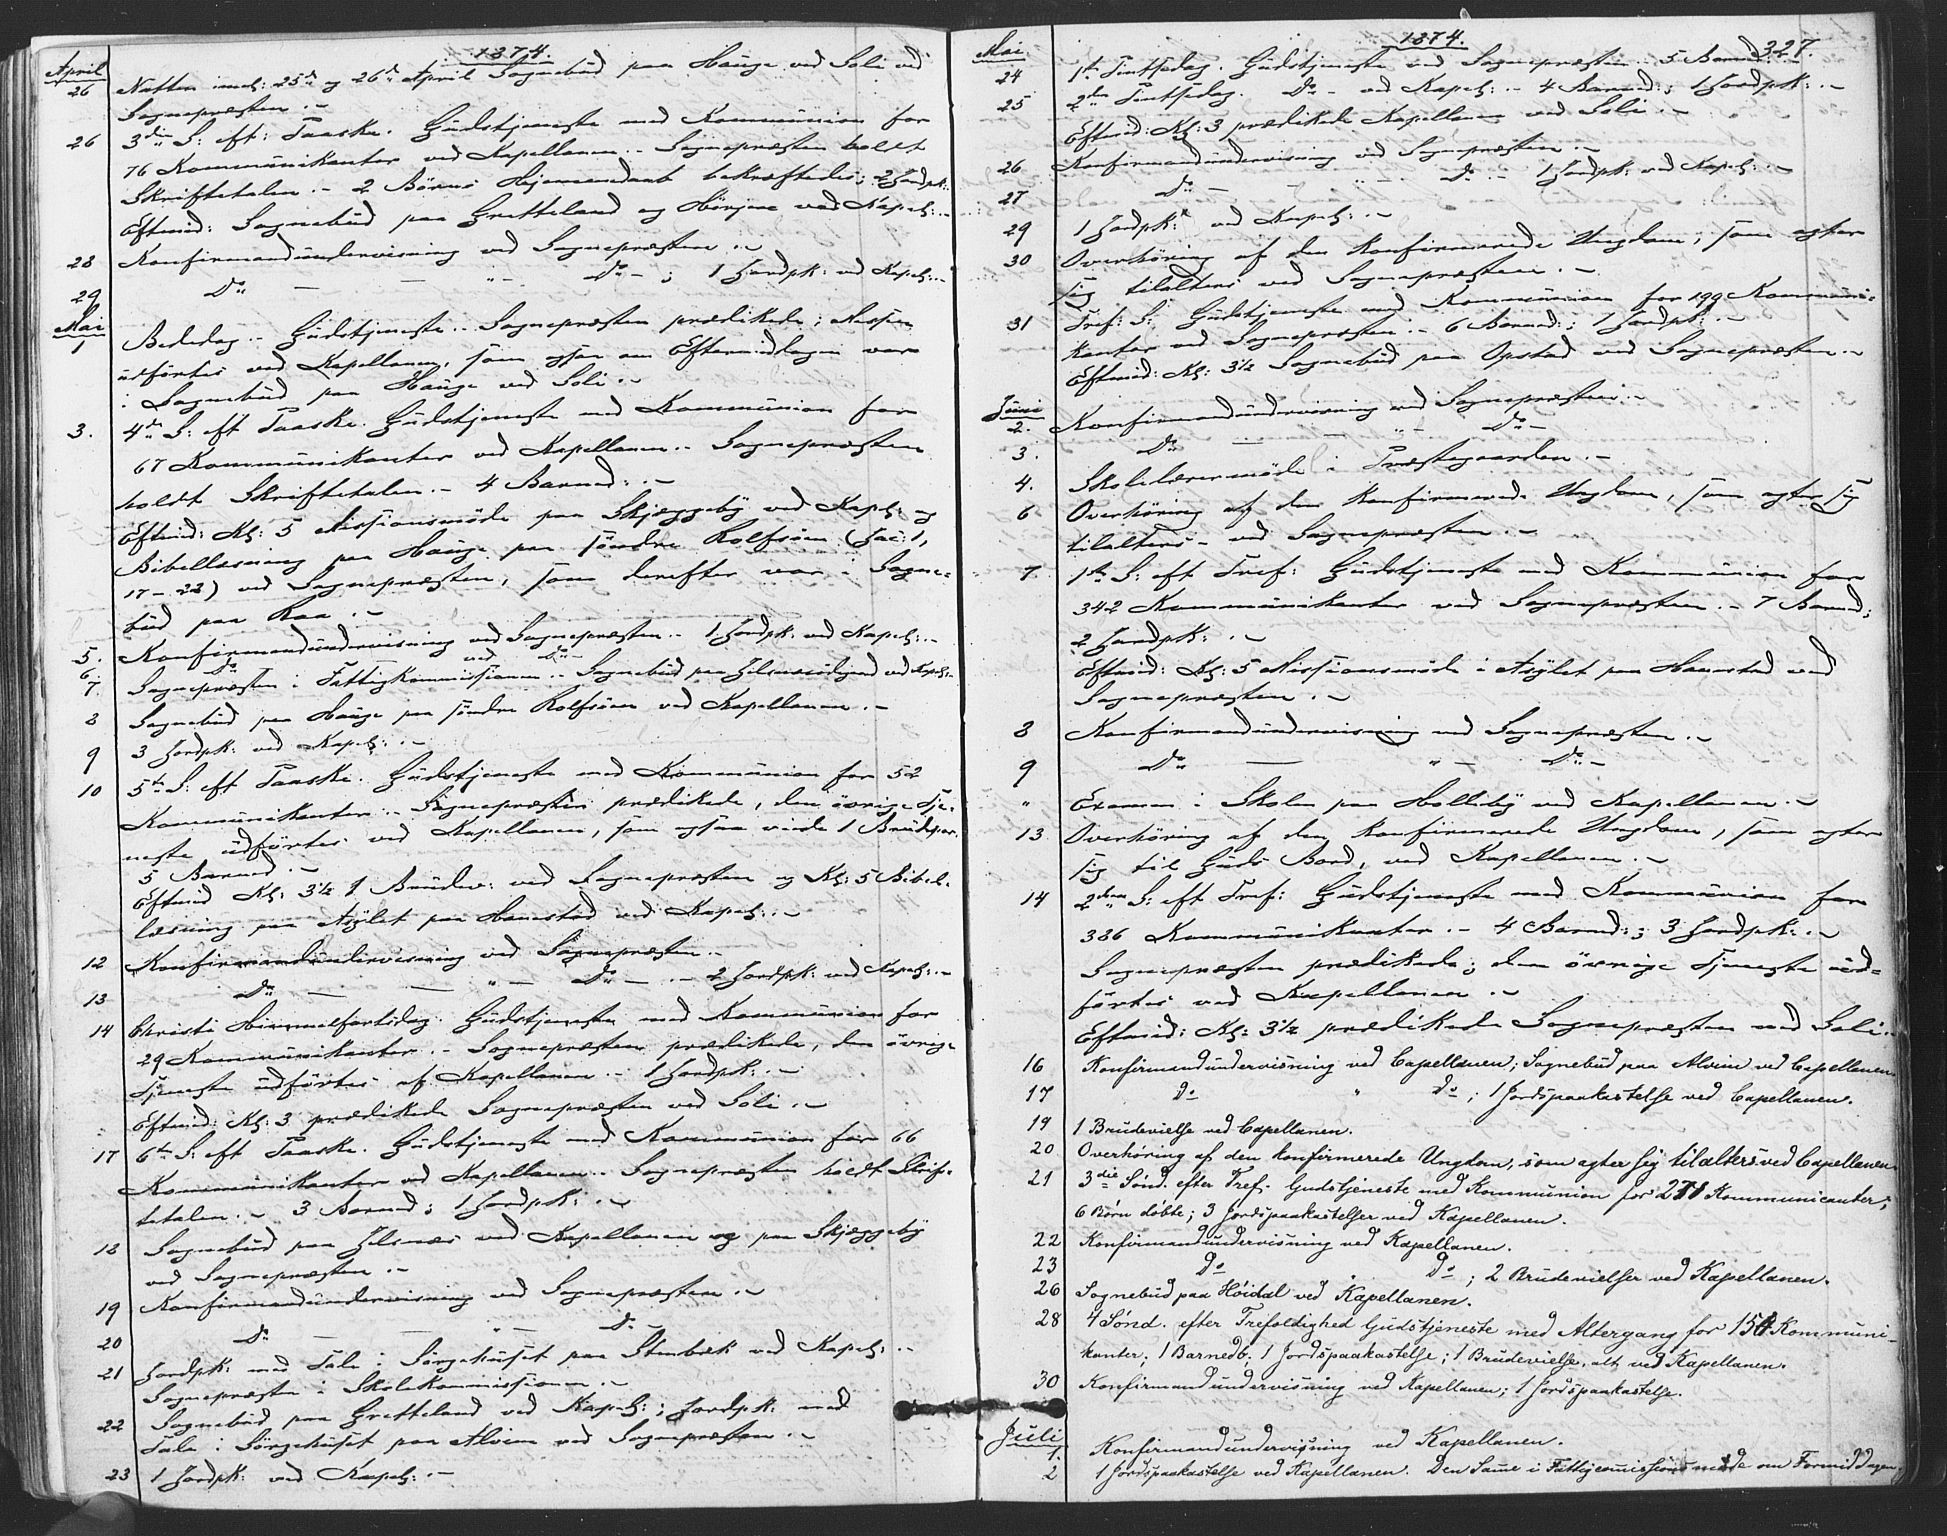 1874.
April
26 Natten imel: 25de og 26de April Sognebüd paa Haüge ved Soli ved
Sognepræsten .~
26 3die S: eft: Paaske. Güdstjeneste med Kommünion for
76 Kommünikanter ved Kapellanen .- Sognepræsten holdt
Skriftetalen .- 2 Börns Hjemmedaab bekræftedes; 2 Jordpk:
Eftmid: Sognebüd paa Gretteland og ved Kapel: .-
28 Konfirmandündervisning ved Sognepræsten .~
29 Do — — " - Do - ; 1 Jordpk: ved Kapel: .-
Mai
1 Bededag .- Güdstjeneste .. Sognepræsten prædikede; Messen
üdförtes ved Kapellanen, som ogsaa om Eftermiddagen var
i Sognebüd paa Haüge ved Soli .~
3. 4de S: eft Paaske. Güdstjeneste med Kommünion for
67 Kommünikanter ved Kapellanen .- Sognepræsten
holdt Skriftetalen .- 4 Barned: .~
Eftmid: Kl: 5 Missionsmöde paa Skjæggeby ved Kapel: og
Bibellæsning paa Haüge paa söndre Rolfsöen (Jac: 1,
17-22) ved Sognepræsten, som derefter var i Sogne=
büd paa Raa .~
5. Konfirmandündervisning ved Sognepræsten .- 1 Jordpk: ved Kapel: .-
6 Do ved Do -
7. Sognepræsten i Fattigkommissionen .. Sognebüd paa ved Kapel: .-
8 Sognebüd paa Haüge paa söndre Rolfsöen ved Kapellanen .-
9 3 Jordpk: ved Kapel: .~
10 5te S: eft Paaske. Güdstjeneste med Kommünion for 52
Kommünikanter .. Sognepræsten prædikede, den övrige Tje=
neste üdförtes ved Kapellanen, som ogsaa viede 1 Brüdepar.
5 Barned .~
Eftmid Kl: 3½ 1 Brüdev: ved Sognepræsten og Kl: 5 Bibel=
læsning paa Asylet paa Hannestad ved Kapel: .~
12 Konfirmandündervisning ved Sognepræsten .-
13 Do — — " - Do - .- 2 Jordpk: ved Kapel: .-
14 Christi Himmelfartsdag. Güdstjeneste med Kommünion for
29 Kommünikanter .- Sognepræsten prædikede, den övrige
Tjeneste üdförtes af Kapellanen .- 1 Jordpk: .~
Eftmid: Kl: 3 prædikede Sognepræsten ved Soli .~
17 6te S: eft Paaske. Güdstjeneste med Kommünion for 66
Kommünikanter ved Kapellanen .. Sognepræsten holdt Skrif=
tetalen .~ 3 Barned; 1 Jordpk: .~
18 Sognebüd paa ved Kapellanen og paa Skjæggeby
ved Sognepræsten .~
19 Konfirmandündervisning ved Sognepræsten .~
20 Do — — " - Do -
21 Jordpk: med Tale i Sörgehüset paa Stenbæk ved Kapel: .~
Sognepræsten i Skolekommissionen .~
22 Sognebüd paa Gretteland ved Kapel: ; Jordpk: med
Tale i Sörgehüset paa Alvim ved Sognepræsten .~
23 1 Jordpk: ved Kapel: .~
1874. 327.
Mai
24 1ste Pintsedag. Güdstjeneste ved Sognepræsten .. 5 Barned: .-
25 2den Pintsedag. Do - ved Kapel: .- 4 Barned: ; 1 Jordpk: .~
Eftmid: Kl: 3 prædikede Kapellanen ved Soli .~
26 Konfirmandündervisning ved Sognepræsten .~
27 Do - " - Do - .- 1 Jordpk: ved Kapel: .~
29 1 Jordpk: ved Kapel: .~
30 Overhöring af den konfirmerede Ungdom, som agter
sig tilalters ved Sognepræsten .~
31 Tref: S: Güdstjeneste med Kommünion for 199 Kommüni=
kanter ved Sognepræsten .- 6 Barned: ; 1 Jordpk: .~
Eftmid: Kl: 3½ Sognebüd paa Opstad ved Sognepræsten .~
Jüni
2. Konfirmandündervisning ved Sognepræsten .-
3. Do — — " - Do -
4. Skolelærermöde i Præstegaarden .~
6 Overhöring af den konfirmerede Ungdom, som agter sig
tilalters - ved Sognepræsten .~
7. 1ste S: eft Tref: Güdstjeneste med Kommünion for
342 Kommünikanter ved Sognepræsten .- 7 Barned;
2 Jordpk: .~
Eftmid: Kl: 5 Missionsmöde i Asylet paa Hannestad ved
Sognepræsten .~
8 Konfirmandündervisning ved Sognepræsten .~
9 Do — " - Do -
" Examen i Skolen paa Holleby ved Kapellanen .~
13 Overhöring af den konfirmerede Ungdom, som agter
sig til Güds Bord, ved Kapellanen .~
14 2den S: eft Tref: Güdstjeneste med Kommünion for
386 Kommünikanter .- 4 Barned: ; 3 Jordpk: .~
Sognepræsten prædikede; den övrige Tjeneste üd=
förtes ved Kapellanen .~
Eftmid: Kl: 3½ prædikede Sognepræsten ved Soli .~
16 Konfirmandundervisning ved Capellanen; Sognebüd paa Alvim ved Capellanen
17 Do " Do ; 1 Jordspaakastelse ved Capellanen.
19 1 Brudevielse ved Capellanen.
20 Overhöring af den konfirmerede Ungdom, som agter sig tilalters ved Capellanen.
21 3die Sönd. efter Tref. Gudstjeneste med Kommunion for 271 Kommunicanter;
6 Börn döbte; 3 Jordspaakastelser ved Kapellanen.
22 Konfirmandundervisning ved Kapellanen.
23 Do " Do ; 2 Brudevielser ved Kapellanen.
26 Sognebüd paa Höidal ved Kapellanen.
28 4 Sönd. efter Trefoldighed Gudstjeneste med Altergang for 154 Kommuni-
kanter; 1 Barnedb; 1 Jordspaakastelse; 1 Brudevielse, alt ved Kapellanen.
30 Konfirmandundervisning ved Kapellanen; 1 Jordspaakastelse.
Jüli
1. Konfirmandundervisning ved Kapellanen.
2 1 Jordspaakastelse ved Kapellanen. Den Same i Fattigcomissionsmöde om Formiddagen